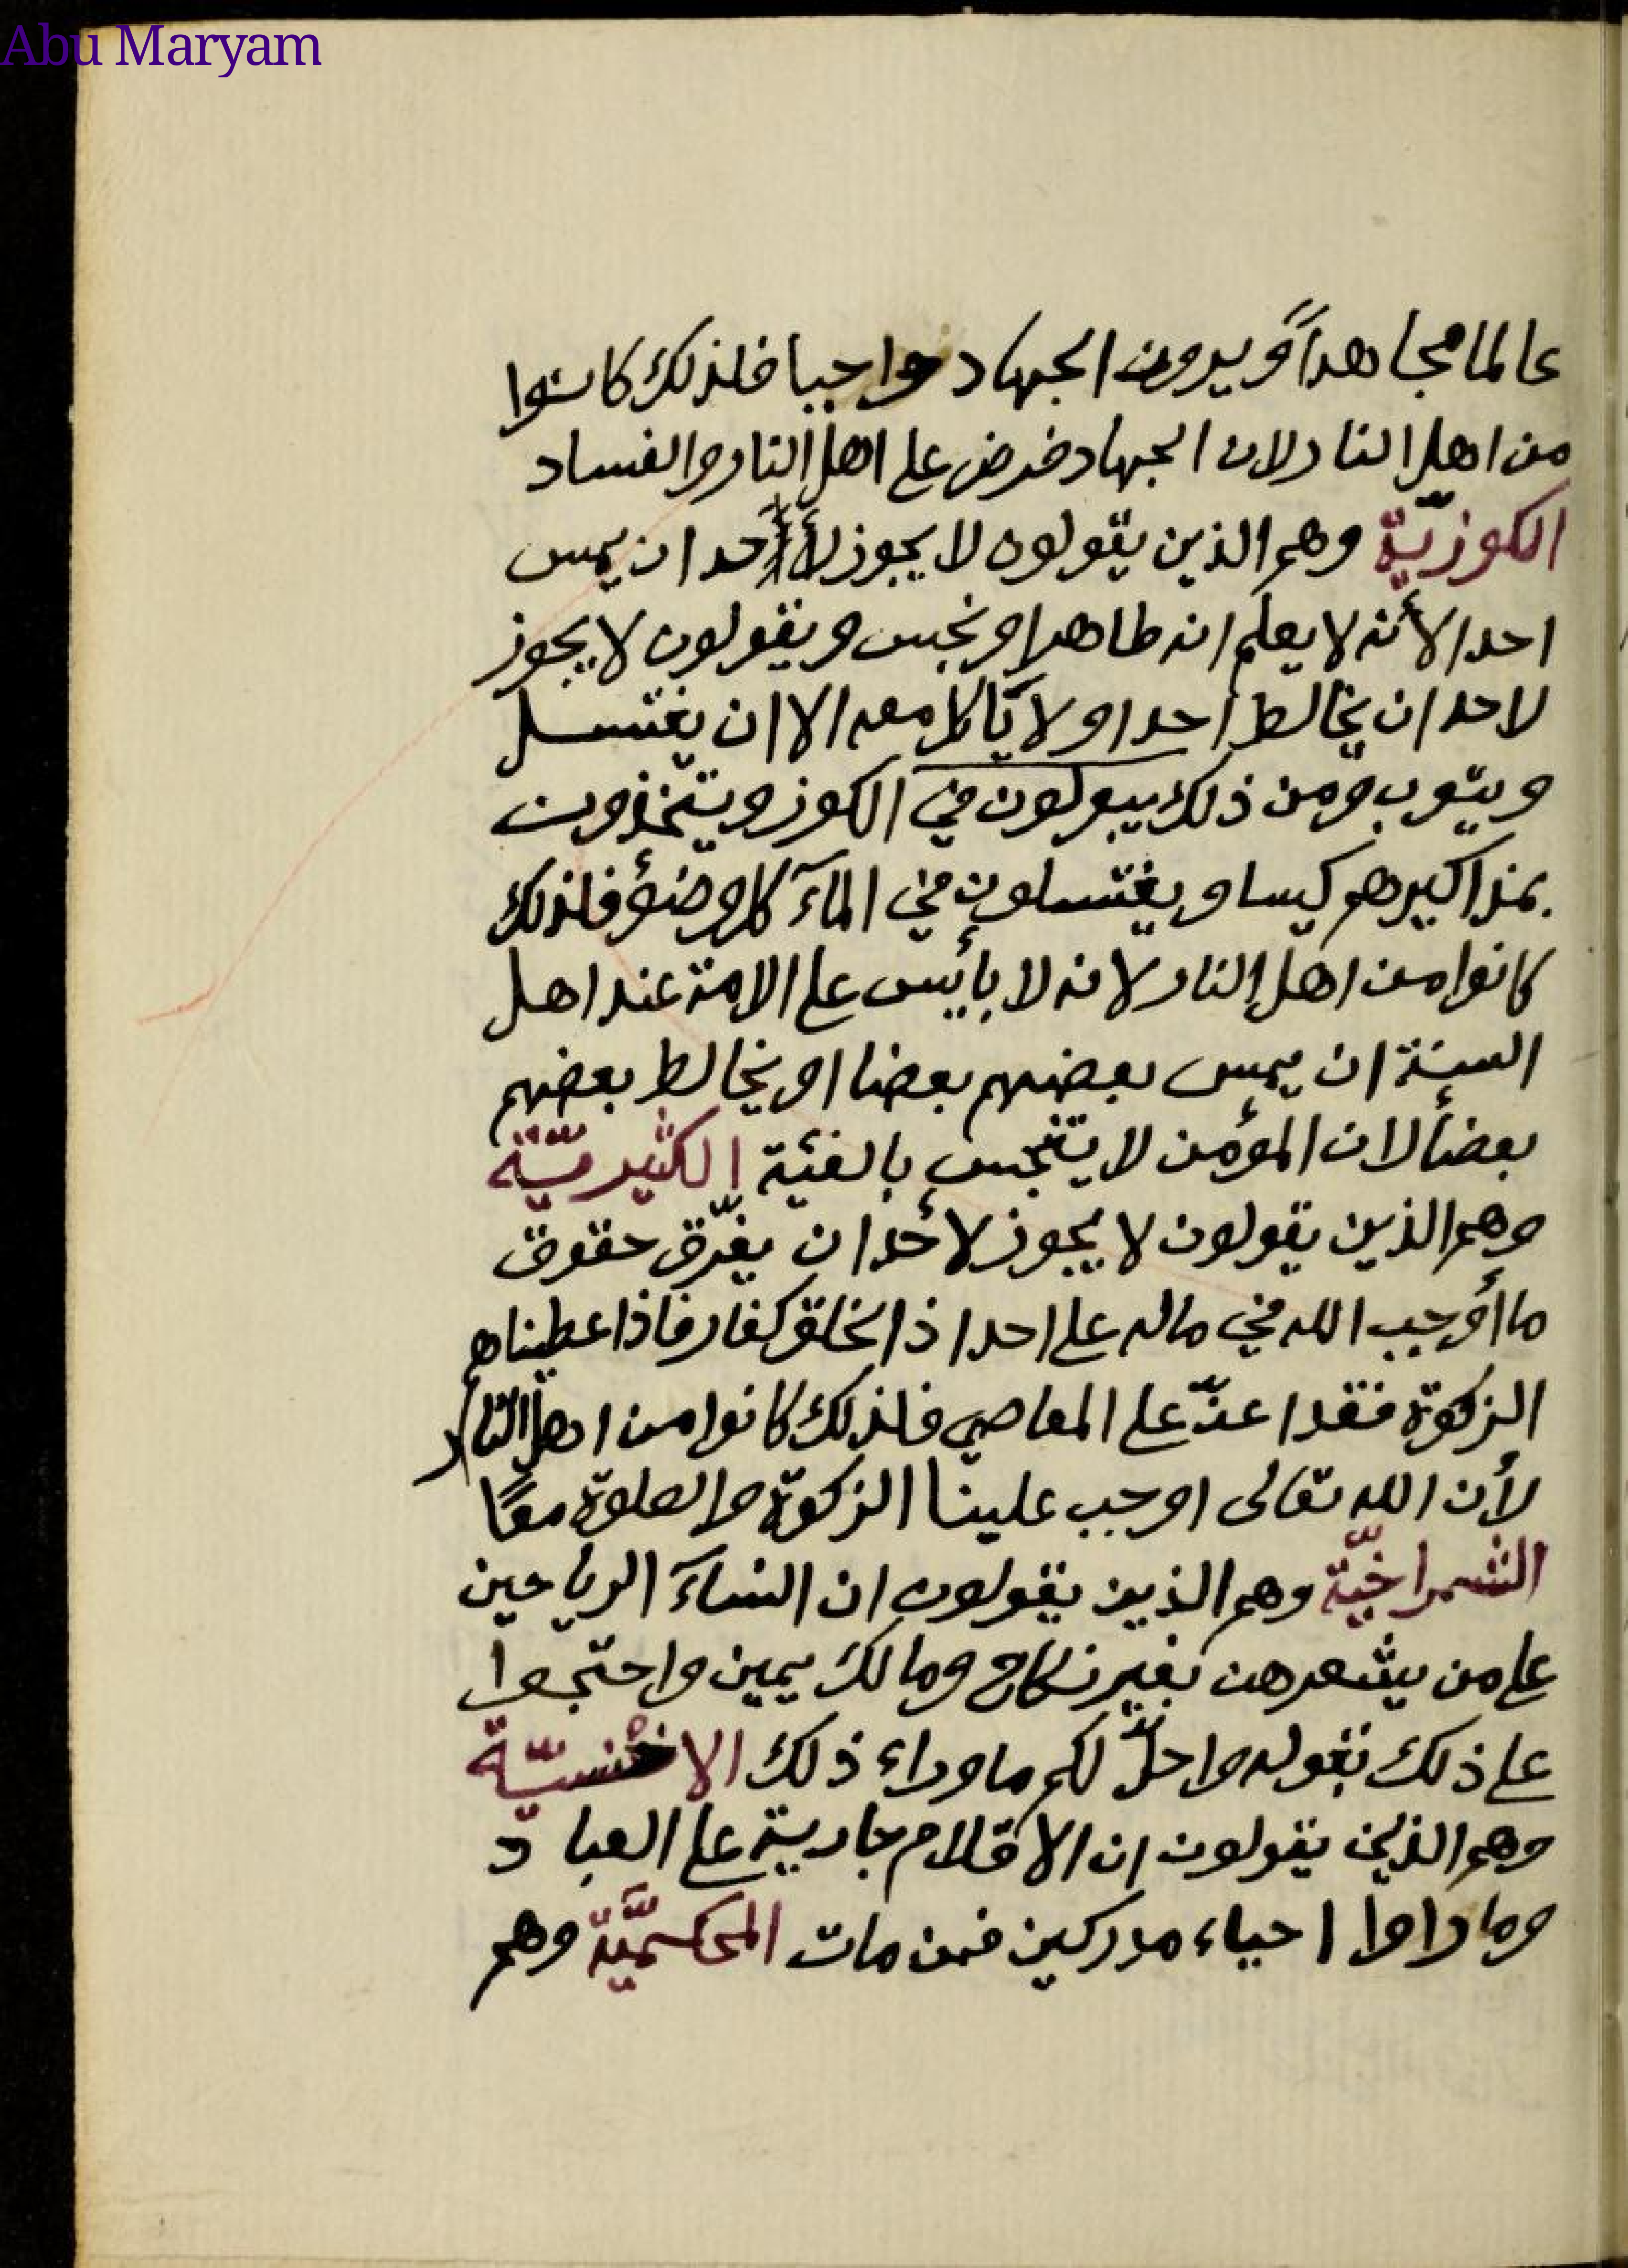 Abu Maryam
عالما مجاهداً ويرون الجهاد واجبا فلذلك كانوا
من اهل النار لان الجهاد فرض على اهل النار والفساد
الكوزيّة وهم الذين يقولون لا يجوز لأحد ان يمس
احدا لأنه لا يعلم انه طاهر او نجس ويقولون لا يجوز
لاحد ان يخالط احدا ولا يأكل معه الا ان يغتسل
ويتوب ومن ذلك يبولون في الكوز ويتخذون
بمذاكيرهم كيسا ويغتسلون في المآء كل وضؤ فلذلك
كانوا من اهل النار لانه لا بائس على الامة عند اهل
السنة ان يمس بعضهم بعضا او يخالط بعضهم
بعضاً لان المؤمن لا يتنجس الكثيريّة
وهم الذين يقولون لا يجوز لأحد ان يفرّق حقوق
ما أوجب الله في ماله على احد اذ الخلق كفار فاذا اعطيناهم
الزكوة فقد اعنّ على المعاصي فلذلك كانوا من اهل النار
لأن الله تعالى اوجب علينا الزكوة والصلوة معًا
الشمراخيّة وهم الذين يقولون ان النساء الرياحين
على من يشعرهن بغير نكاح ومالك يمين واحتجوا
على ذلك بقوله واحلّ لكم ما وراء ذلك الاخنسيّة
وهم الذين يقولون ان الاقلام جارية على العباد
وما داموا احياء مدركين فمن مات وهم